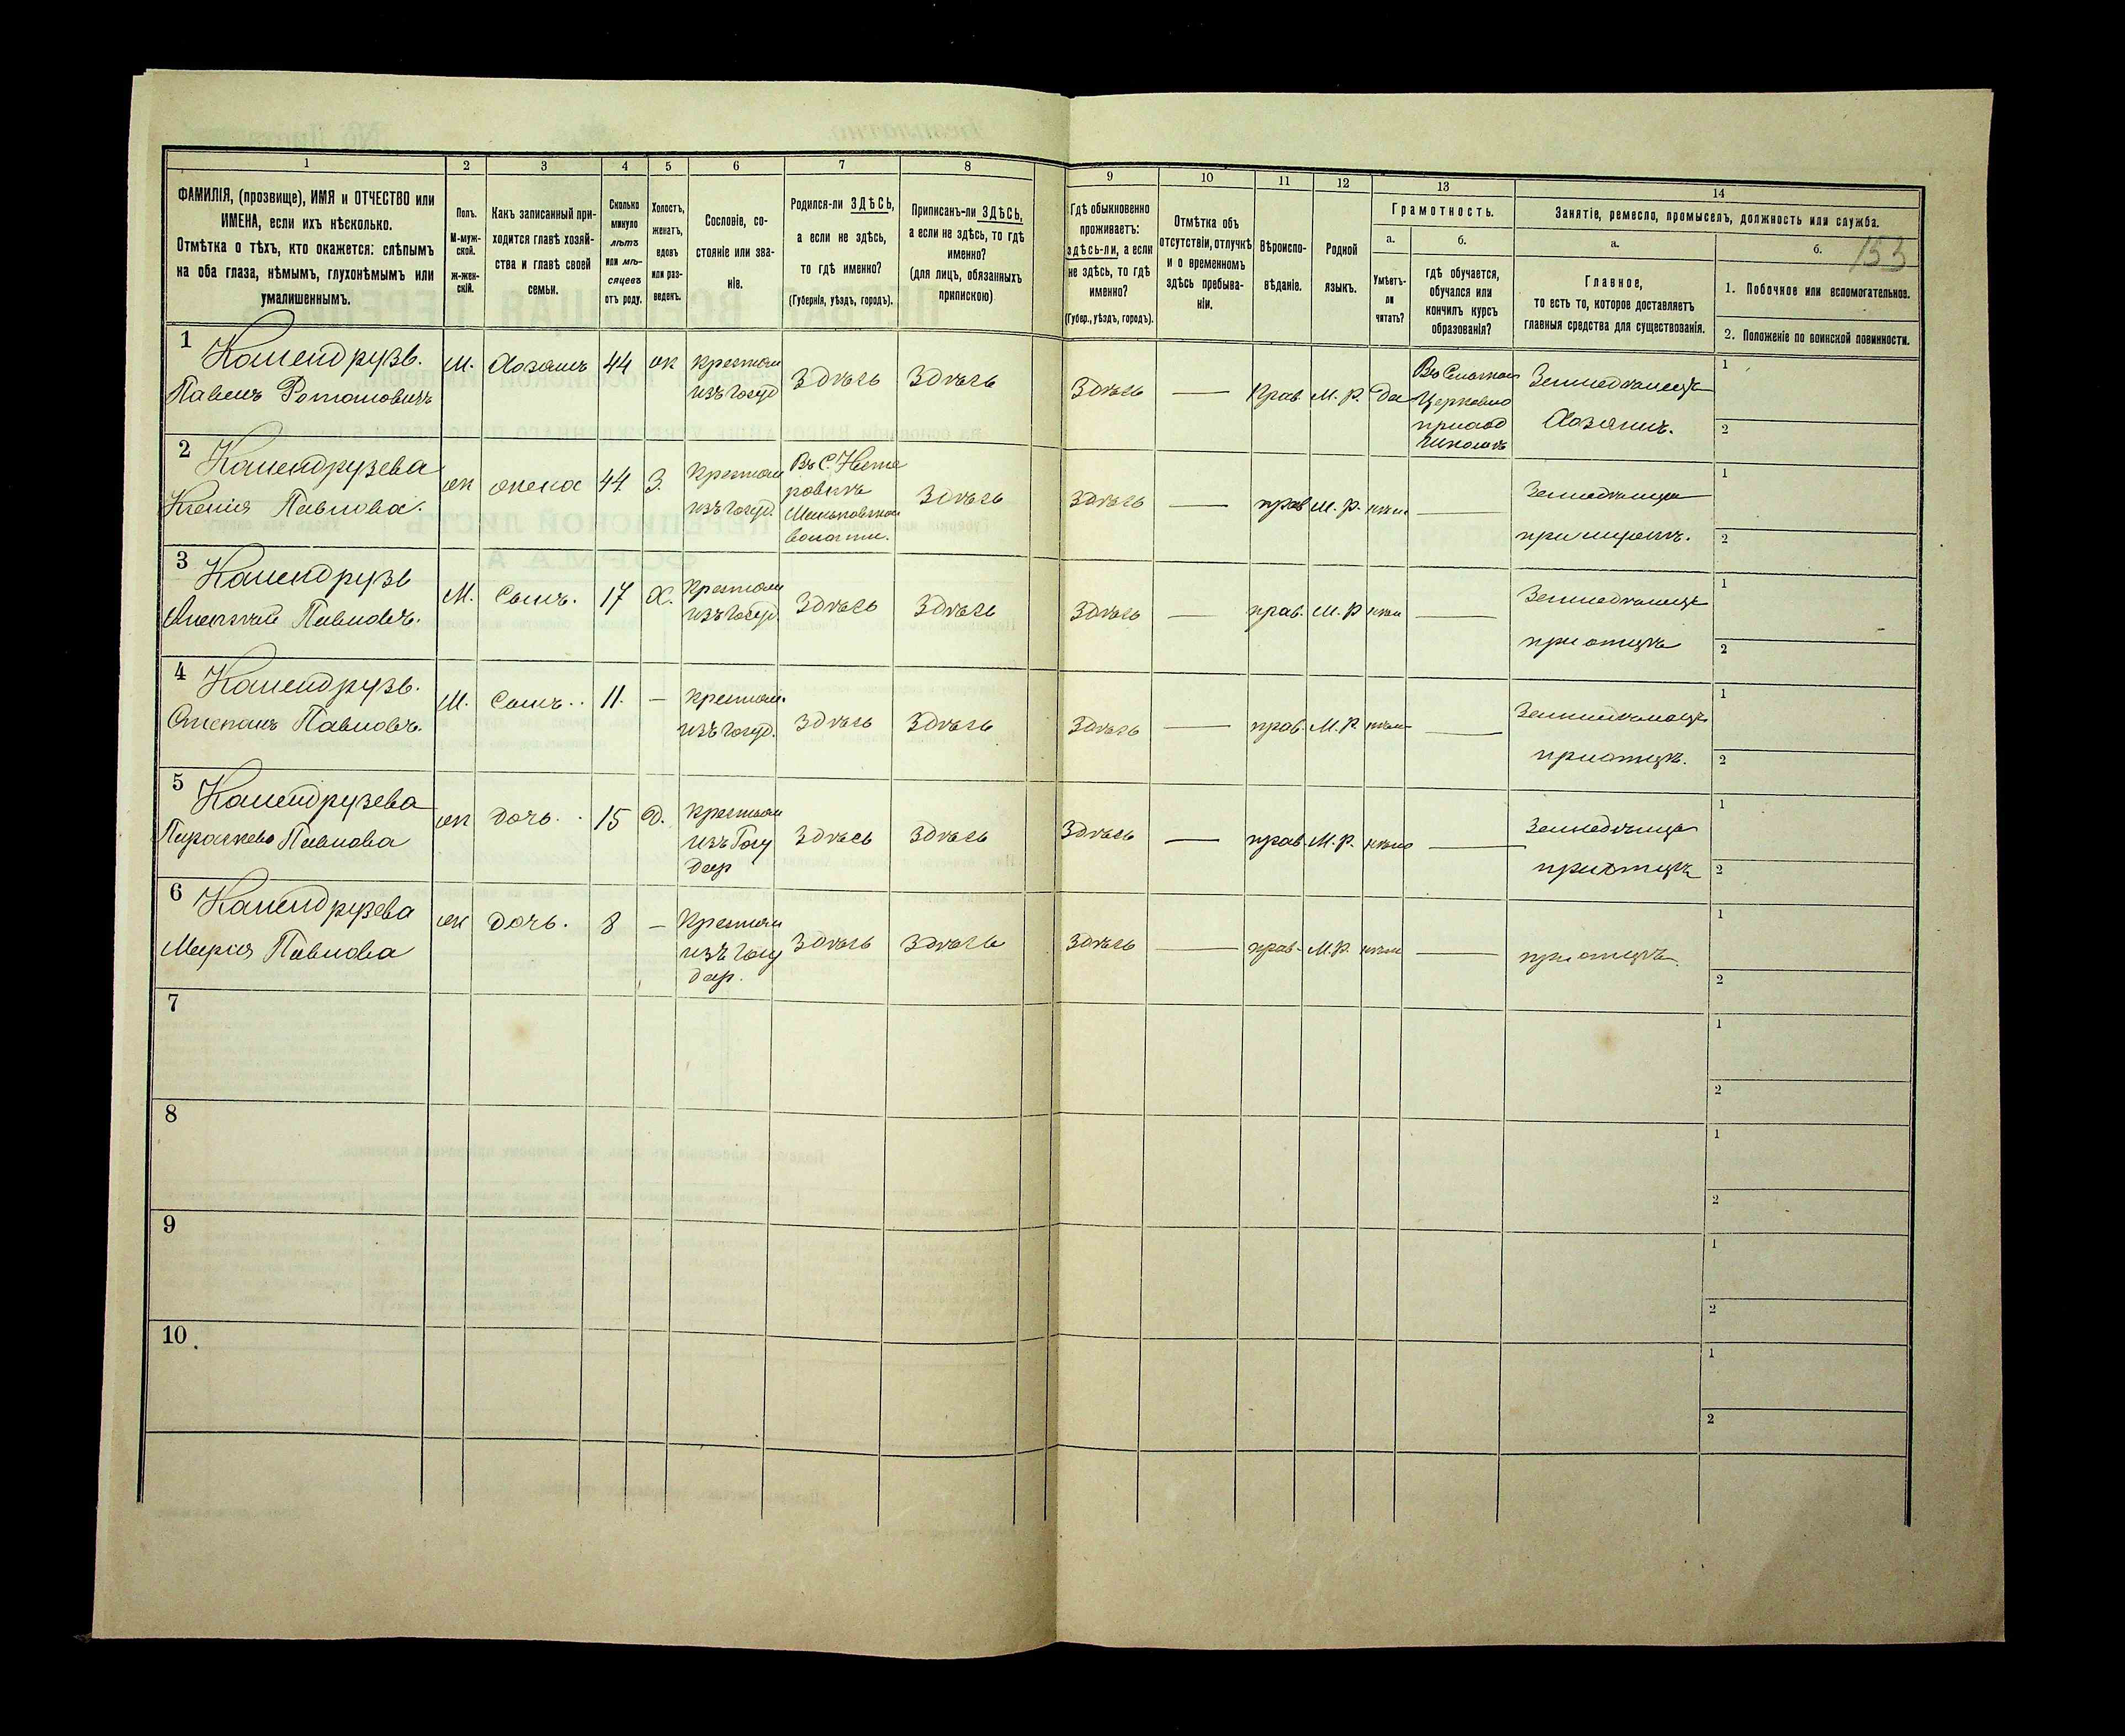 1
2
3
4
5
6
7
8
ФАМИЛІЯ, (прозвище), ИМЯ и ОТЧЕСТВО или
ИМЕНА, если ихъ нѣсколько.
Отмѣтка о тѣхъ, кто окажется: слѣпымъ
на оба глаза, нѣмымъ, глухонѣмымъ или
умалишеннымъ.
Полъ.
М-муж-
ской.
ж-жен-
скій.
Какъ записанный при-
ходится главѣ хозяй-
ства и главѣ своей
семьи.
Сколько
минуло
лѣтъ
или мѣ-
сяцевъ
отъ роду.
Холостъ,
женатъ,
вдовъ
или раз-
веденъ.
Сословіе, со-
стояніе или зва-
ніе.
Родился-ли ЗДѢСЬ,
а если не здѣсь,
то гдѣ именно?
(Губернія, уѣздъ, городъ).
Приписанъ-ли ЗДѢСЬ,
а если не здѣсь, то гдѣ
именно?
(для лицъ, обязанныхъ
припискою)
9
10
11
12
13
14
Гдѣ обыкновенно
проживаетъ:
здѣсь-ли, а если
не здѣсь, то гдѣ
именно?
(Губер., уѣздъ, городъ).
Отмѣтка объ
отсутствіи, отлучкѣ
и о временномъ
здѣсь пребыва-
ніи.
Вѣроиспо-
вѣданіе.
Родной
языкъ.
Грамотность.
а.
б.
Умѣетъ-
ли
читать?
гдѣ обучается,
обучался или
кончилъ курсъ
образованія?
Занятіе, ремесло, промыселъ, должность или служба.
а.
б.
153
Главное,
то есть то, которое доставляетъ
главныя средства для существованія.
1. Побочное или вспомогательное.
2. Положеніе по воинской повинности.
1
Павелъ Романовичъ
М. Хозяинъ 44 ж
Крестьян
изъ Госуд
Здѣсь Здѣсь
Здѣсь — Прав. М. Р. Да
Церковно
приход
Земледѣлецъ
Хозяинъ.
1
2
2
Ксенія Павлова.
ж жена 44 З.
Крестьян
изъ Госуд.
Въ С.
волости.
Здѣсь
Здѣсь — прав М. Р. нѣт —
Земледѣлица
при мужѣ.
1
2
3
Алексѣй Павловъ.
М. Сынъ. 17 Х.
Крестьян
изъ Госуд.
Здѣсь Здѣсь
Здѣсь — прав. М. Р нѣт —
Земледѣлецъ
при отцѣ
1
2
4
Степанъ Павловъ.
М. Сынъ. 11. —
Крестьян
изъ Госуд.
Здѣсь Здѣсь
Здѣсь — прав. М. Р. нѣт —
Земледѣлецъ
при отцѣ.
1
2
5
Параскева Павлова
ж дочь. 15 Д.
Крестьян
изъ Госу
дар
Здѣсь Здѣсь
Здѣсь — прав. М. Р. нѣт —
Земледѣлица
при отцѣ
1
2
6
Марія Павлова
ж дочь. 8 —
Крестьян
изъ Госу
дар.
Здѣсь Здѣсь
Здѣсь — прав. М. Р. нѣт —
при отцѣ.
1
2
7
1
2
8
1
2
9
1
2
10
1
2